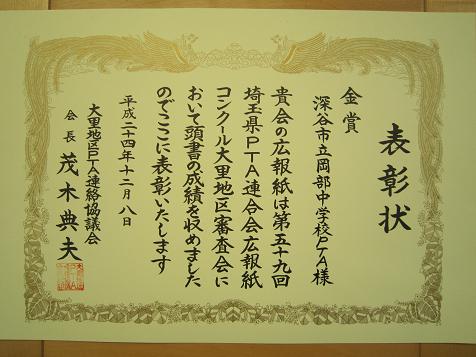 表彰状
金賞
深谷市立岡部中学校PTA様
貴会の広報紙は第五十九回
埼玉県PTA連合会広報紙
コンクール大里地区審査会に
おいて頭書の成績を収めました
のでここに表彰いたします
平成二十四年十二月八日
大里地区PTA連絡協議会
会長 茂木典夫